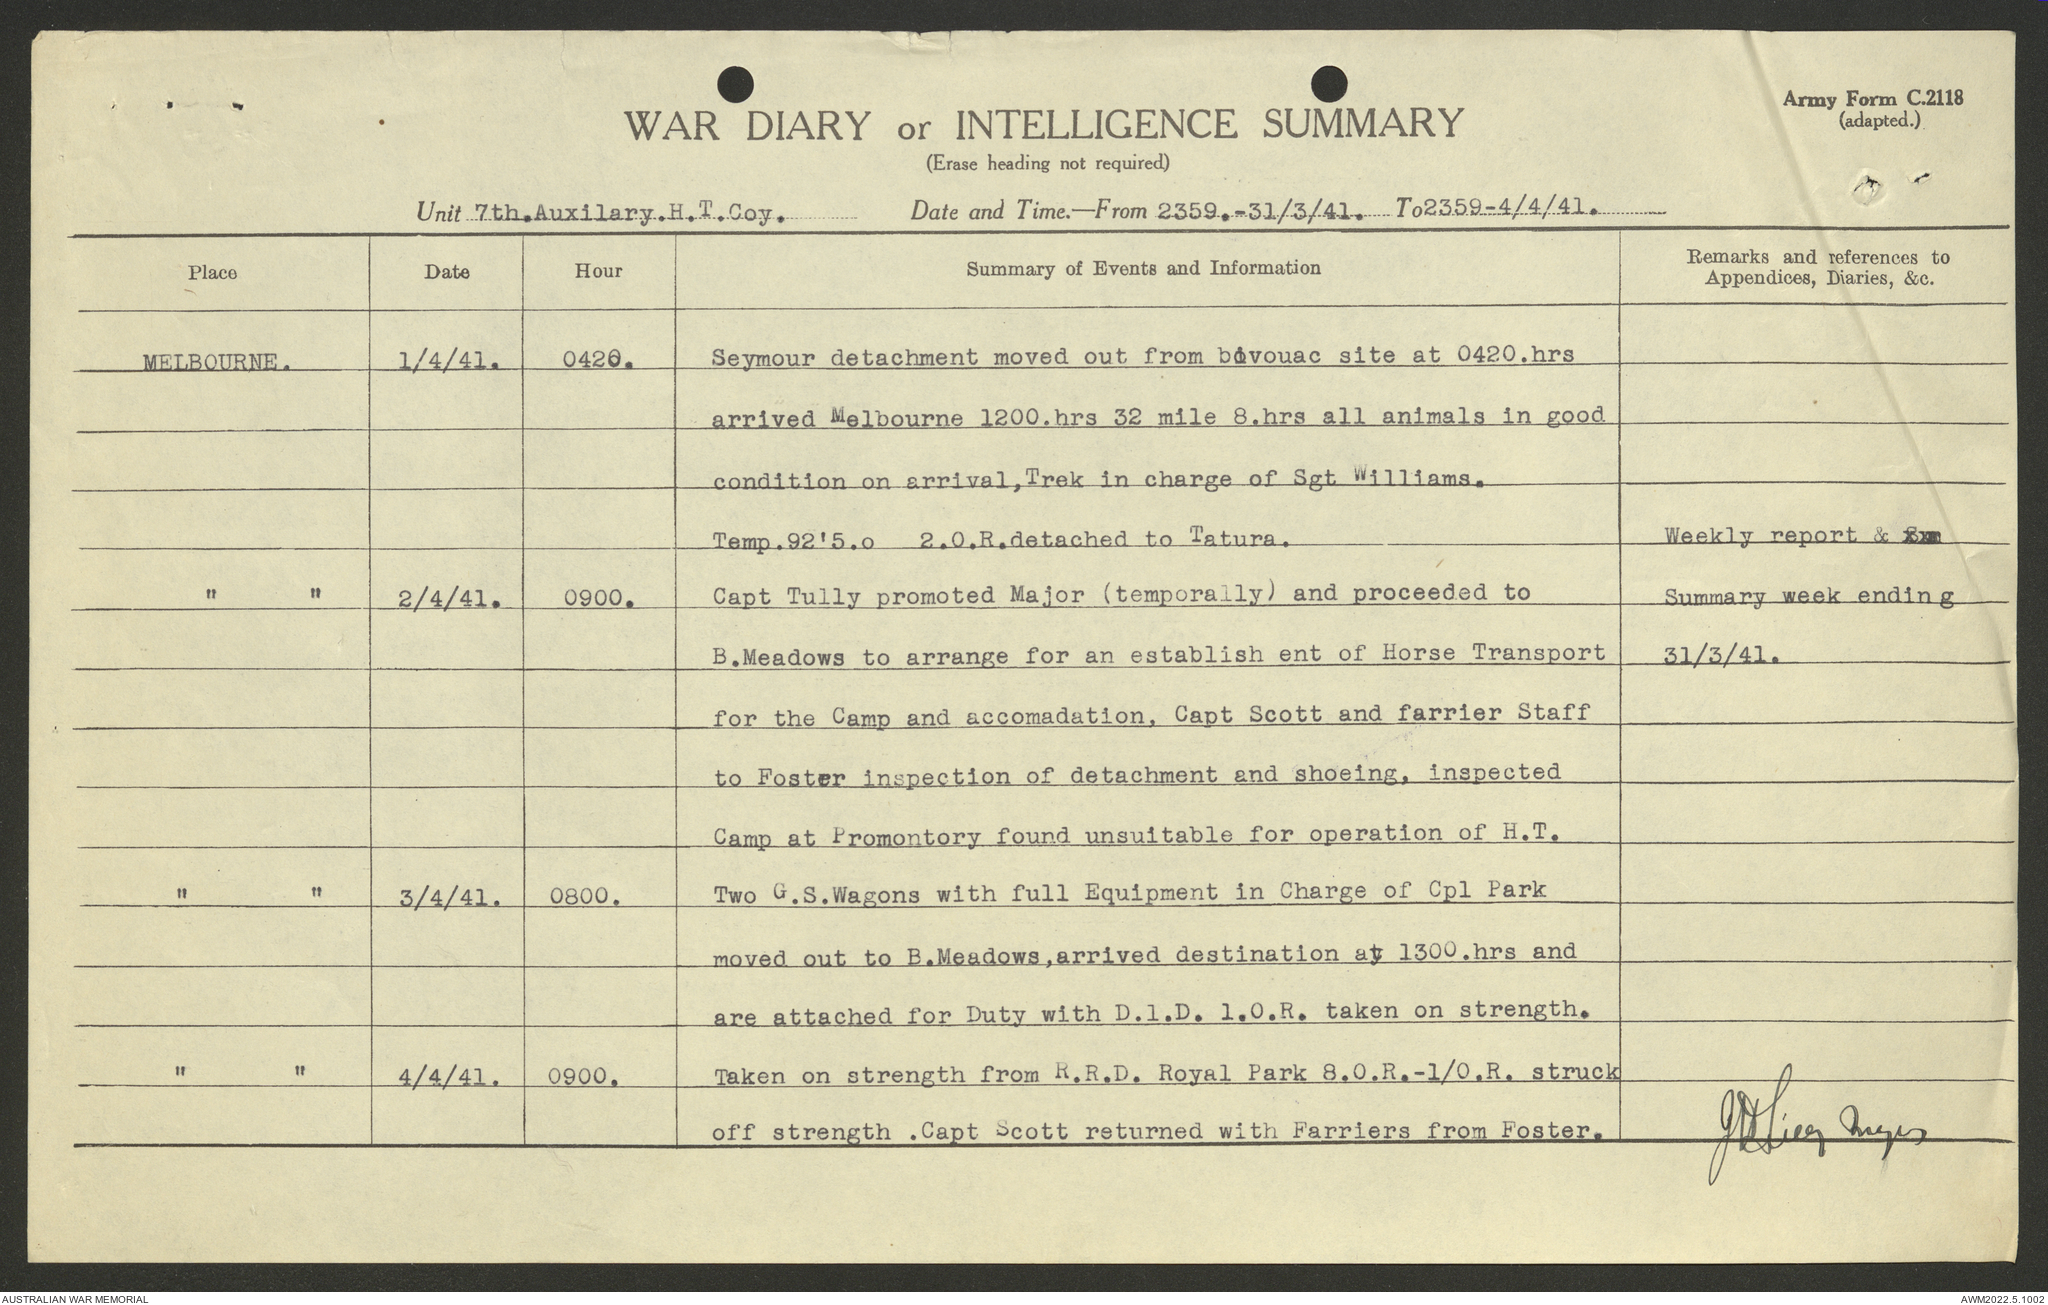 Army Form C.2118
(adapted.)
WAR DIARY or INTELLIGENCE SUMMARY
(Erase heading not required)
Unit 7th.Auxilary.H.T.Coy. Date and Time.—From 2359.-31/3/41. To 2359-4/4/41.
Place Date Hour Summary of Events and Information Remarks and references to
Appendices, Diaries, &c.
MELBOURNE. 1/4/41. 0420. Seymour detachment moved out from bivouac site at 0420.hrs
arrived Melbourne 1200.hrs 32 mile 8.hrs all animals in good
condition on arrival,Trek in charge of Sgt Williams.
Temp.92'5.o 2.O.R.detached to Tatura. Weekly report &
" " 2/4/41. 0900. Capt Tully promoted Major (temporally) and proceeded to Summary week ending
B.Meadows to arrange for an establish ent of Horse Transport 31/3/41.
for the Camp and accomadation, Capt Scott and farrier Staff
to Foster inspection of detachment and shoeing, inspected
Camp at Promontory found unsuitable for operation of H.T.
" " 3/4/41. 0800. Two G.S.Wagons with full Equipment in Charge of Cpl Park
moved out to B.Meadows,arrived destination at 1300.hrs and
are attached for Duty with D.1.D. 1.O.R. taken on strength.
" " 4/4/41. 0900. Taken on strength from R.R.D. Royal Park 8.O.R.-1/O.R. struck
off strength .Capt Scott returned with Farriers from Foster.
AUSTRALIAN WAR MEMORIAL AWM2022.5.1002